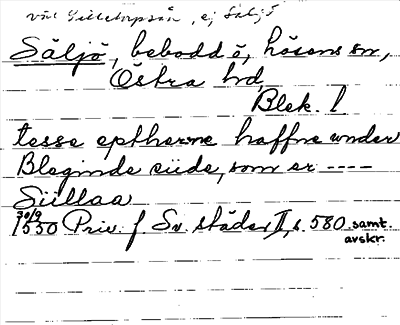 väl Silletorpsån, ej Säljö
Säljö, bebodd ö, hösens sn,
Östra hd,
Blek. l
tesse eptherne haffne wnder
Bleginde siide, som er ----
Siillaa
30/9
1530 Priv. f. Sv. städer II, s. 580 samt.
avskr.